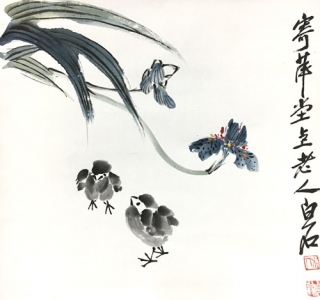 寄萍堂上老人白石